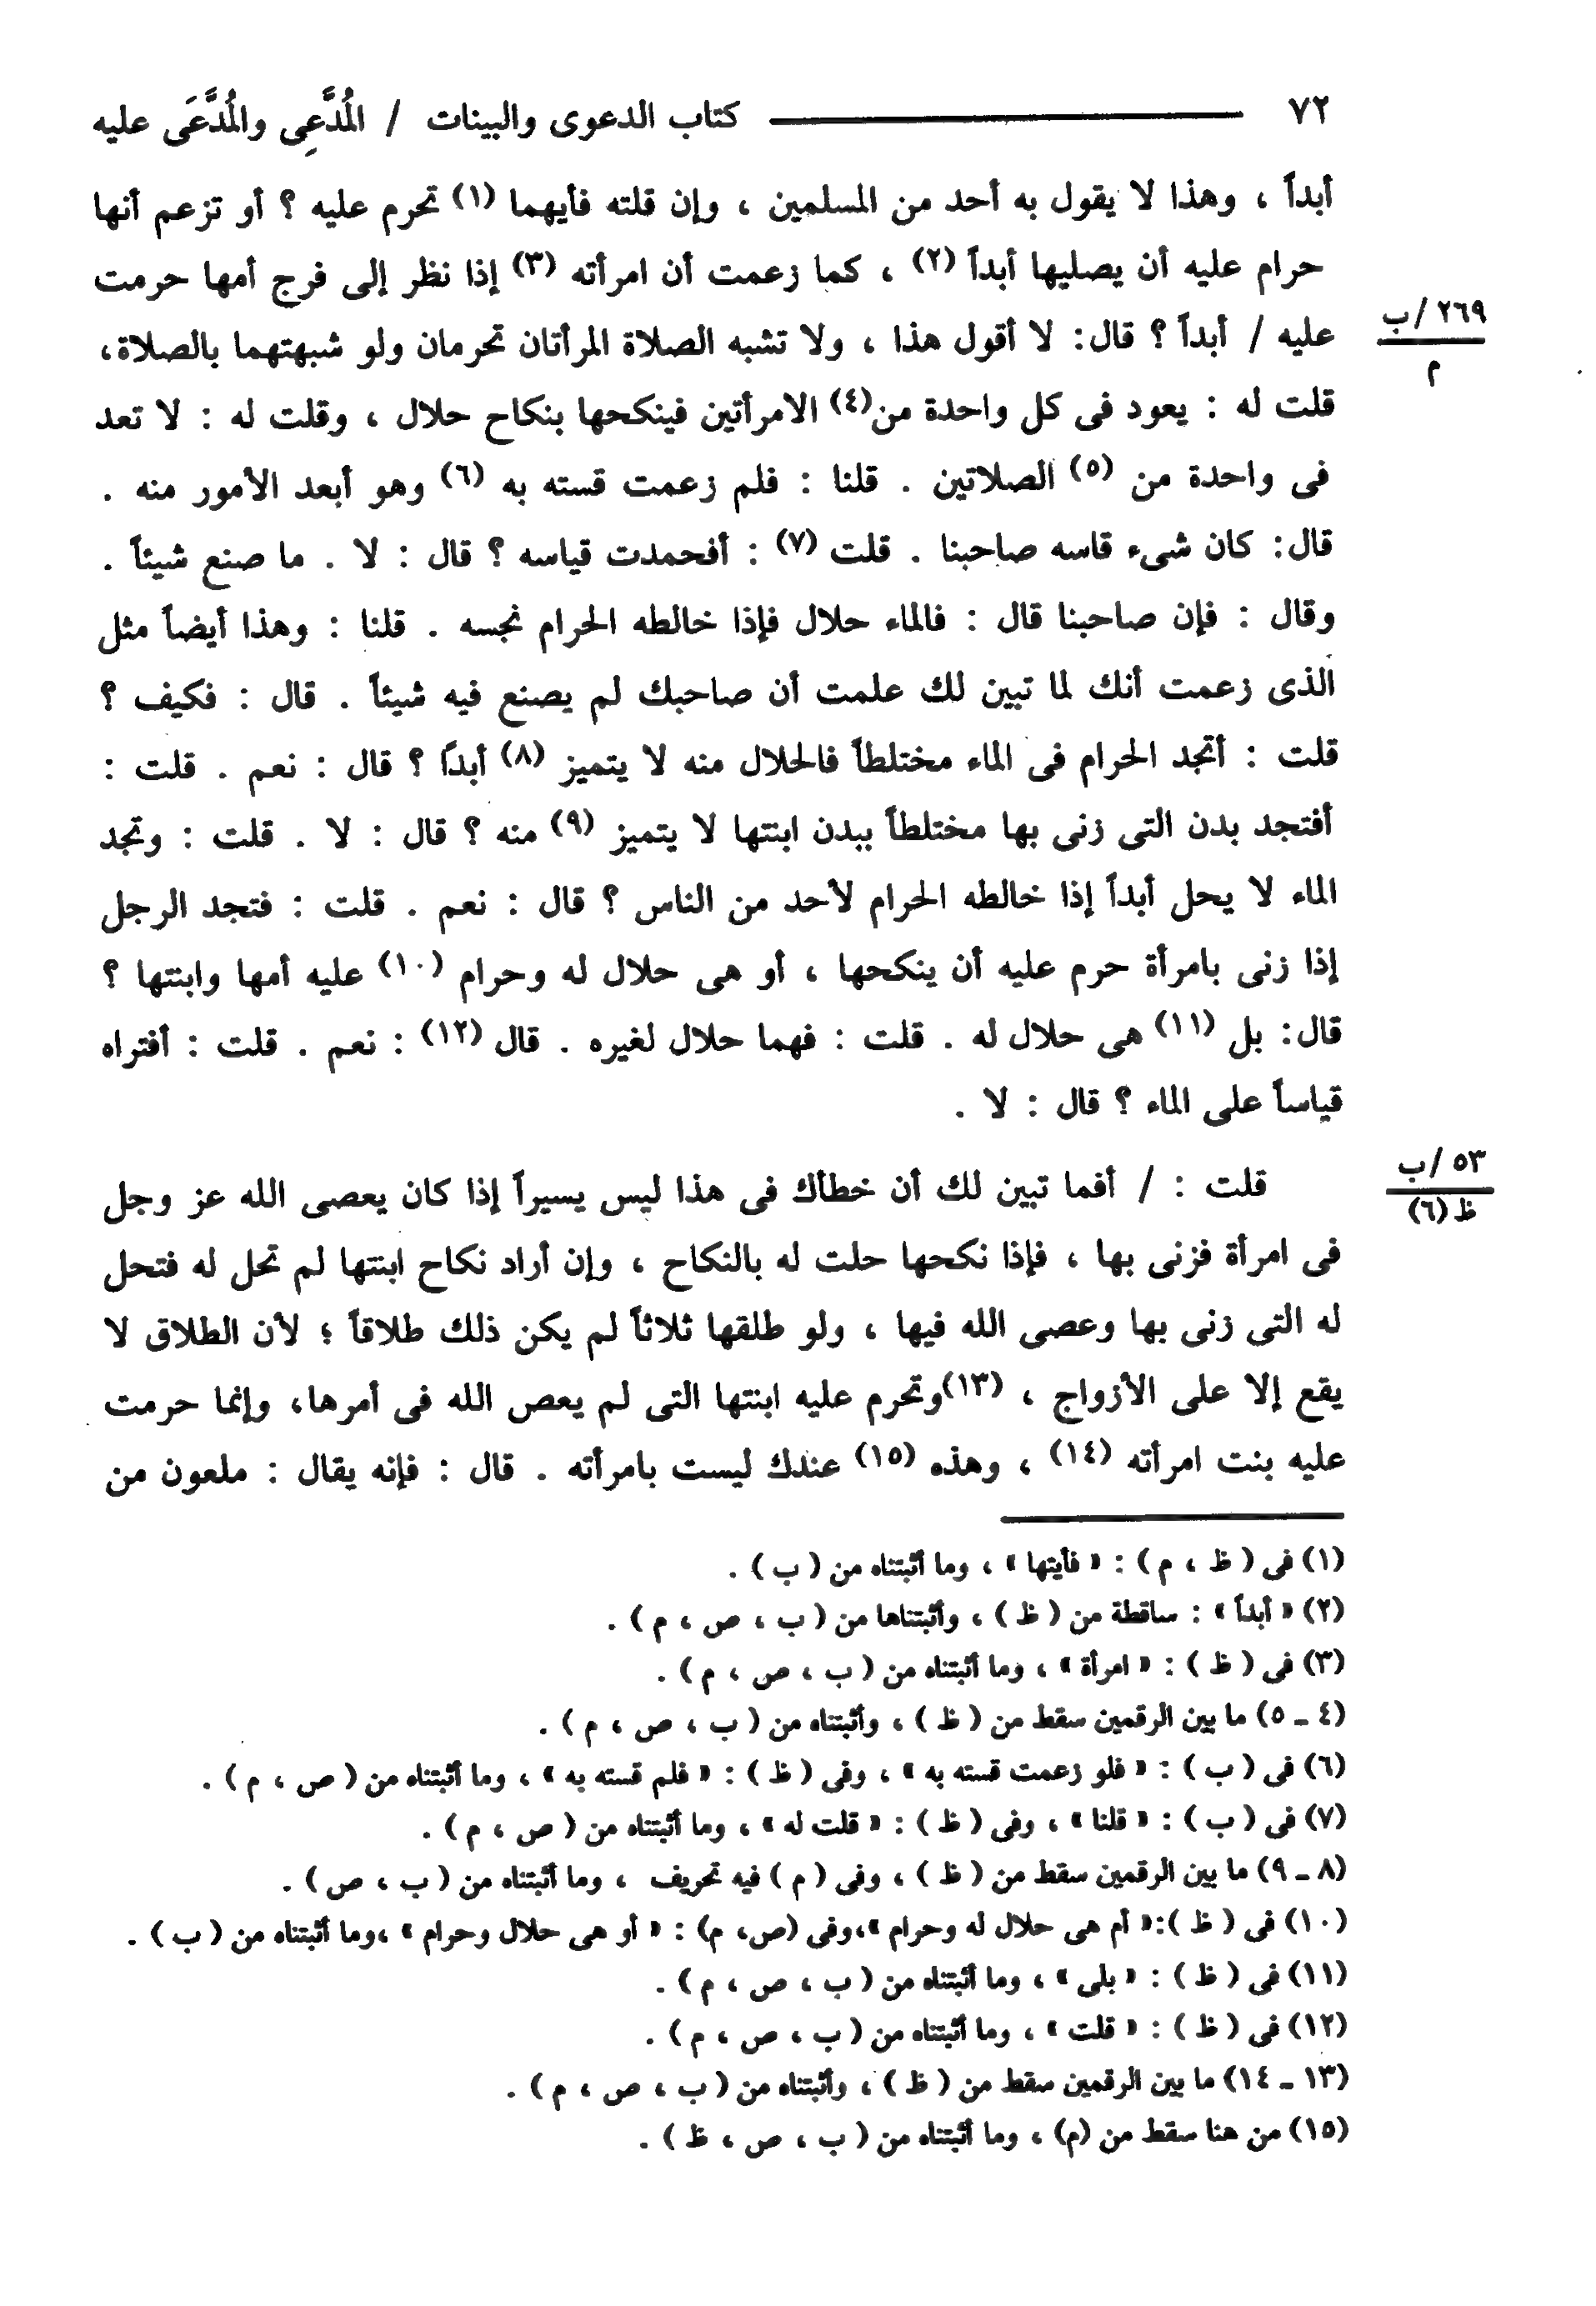 ٧٢ ــــــــــــ كتاب الدعوى والبينات / المُدَّعِى والمُدَّعَى عليه
أبداً ، وهذا لا يقول به أحد من المسلمين ، وإن قلته فأيهما (١) تحرم عليه ؟ أو تزعم أنها
حرام عليه أن يصليها أبداً (٢) ، كما زعمت أن امرأته (٣) إذا نظر إلى فرج أمها حرمت
٢٦٩/ب
م
عليه / أبداً ؟ قال: لا أقول هذا ، ولا تشبه الصلاة المرأتان تحرمان ولو شبهتهما بالصلاة،
قلت له : يعود فى كل واحدة من(٤) الامرأتين فينكحها بنكاح حلال ، وقلت له : لا تعد
فى واحدة من (٥) الصلاتين . قلنا : فلم زعمت قسته به (٦) وهو أبعد الأمور منه .
قال: كان شىء قاسه صاحبنا . قلت (٧) : أفحمدت قياسه ؟ قال : لا . ما صنع شيئاً .
وقال : فإن صاحبنا قال : فالماء حلال فإذا خالطه الحرام نجسه . قلنا : وهذا أيضاً مثل
الذى زعمت أنك لما تبين لك علمت أن صاحبك لم يصنع فيه شيئاً . قال : فكيف ؟
قلت : أتجد الحرام فى الماء مختلطاً فالحلال منه لا يتميز (٨) أبداً ؟ قال : نعم . قلت :
أفتجد بدن التى زنى بها مختلطاً ببدن ابنتها لا يتميز (٩) منه ؟ قال : لا . قلت : وتجد
الماء لا يحل أبداً إذا خالطه الحرام لأحد من الناس ؟ قال : نعم . قلت : فتجد الرجل
إذا زنى بامرأة حرم عليه أن ينكحها ، أو هى حلال له وحرام (١٠) عليه أمها وابنتها ؟
قال: بل (١١) هى حلال له . قلت : فهما حلال لغيره . قال (١٢) : نعم . قلت : أفتراه
قياساً على الماء ؟ قال : لا .
٥٣/ب
ظ (٦)
قلت : / أفما تبين لك أن خطأك فى هذا ليس يسيراً إذا كان يعصى الله عز وجل
فى امرأة فزنى بها ، فإذا نكحها حلت له بالنكاح ، وإن أراد نكاح ابنتها لم تحل له فتحل
له التى زنى بها وعصى الله فيها ، ولو طلقها ثلاثاً لم يكن ذلك طلاقاً ؛ لأن الطلاق لا
يقع إلا على الأزواج ، (١٣)وتحرم عليه ابنتها التى لم يعص الله فى أمرها، وإنما حرمت
عليه بنت امرأته (١٤) ، وهذه (١٥) عندك ليست بامرأته . قال : فإنه يقال : ملعون من
(١) فى ( ظ ، م ) : « فأيتها » ، وما أثبتناه من ( ب ) .
(٢) « أبداً » : ساقطة من ( ظ ) ، وأثبتناها من ( ب ، ص ، م ) .
(٣) فى ( ظ ) : « امرأة » ، وما أثبتناه من ( ب ، ص ، م ) .
(٤ ـ ٥) ما بين الرقمين سقط من ( ظ ) ، وأثبتناه من ( ب ، ص ، م ) .
(٦) فى ( ب ) : « فلو زعمت قسته به » ، وفى ( ظ ) : « فلم قسته به » ، وما أثبتناه من ( ص ، م ) .
(٧) فى ( ب ) : « قلنا » ، وفى ( ظ ) : « قلت له » ، وما أثبتناه من ( ص ، م ) .
(٨ ـ ٩) ما بين الرقمين سقط من ( ظ ) ، وفى ( م ) فيه تحريف ، وما أثبتناه من ( ب ، ص ) .
(١٠) فى ( ظ ):« أم هى حلال له وحرام »،وفى (ص، م) : « أو هى حلال وحرام » ،وما أثبتناه من ( ب ) .
(١١) فى ( ظ ) : « بلى » ، وما أثبتناه من ( ب ، ص ، م ) .
(١٢) فى ( ظ ) : « قلت » ، وما أثبتناه من ( ب ، ص ، م ) .
(١٣ ـ ١٤) ما بين الرقمين سقط من ( ظ ) ، وأثبتناه من ( ب ، ص ، م ) .
(١٥) من هنا سقط من (م) ، وما أثبتناه من ( ب ، ص ، ظ ) .